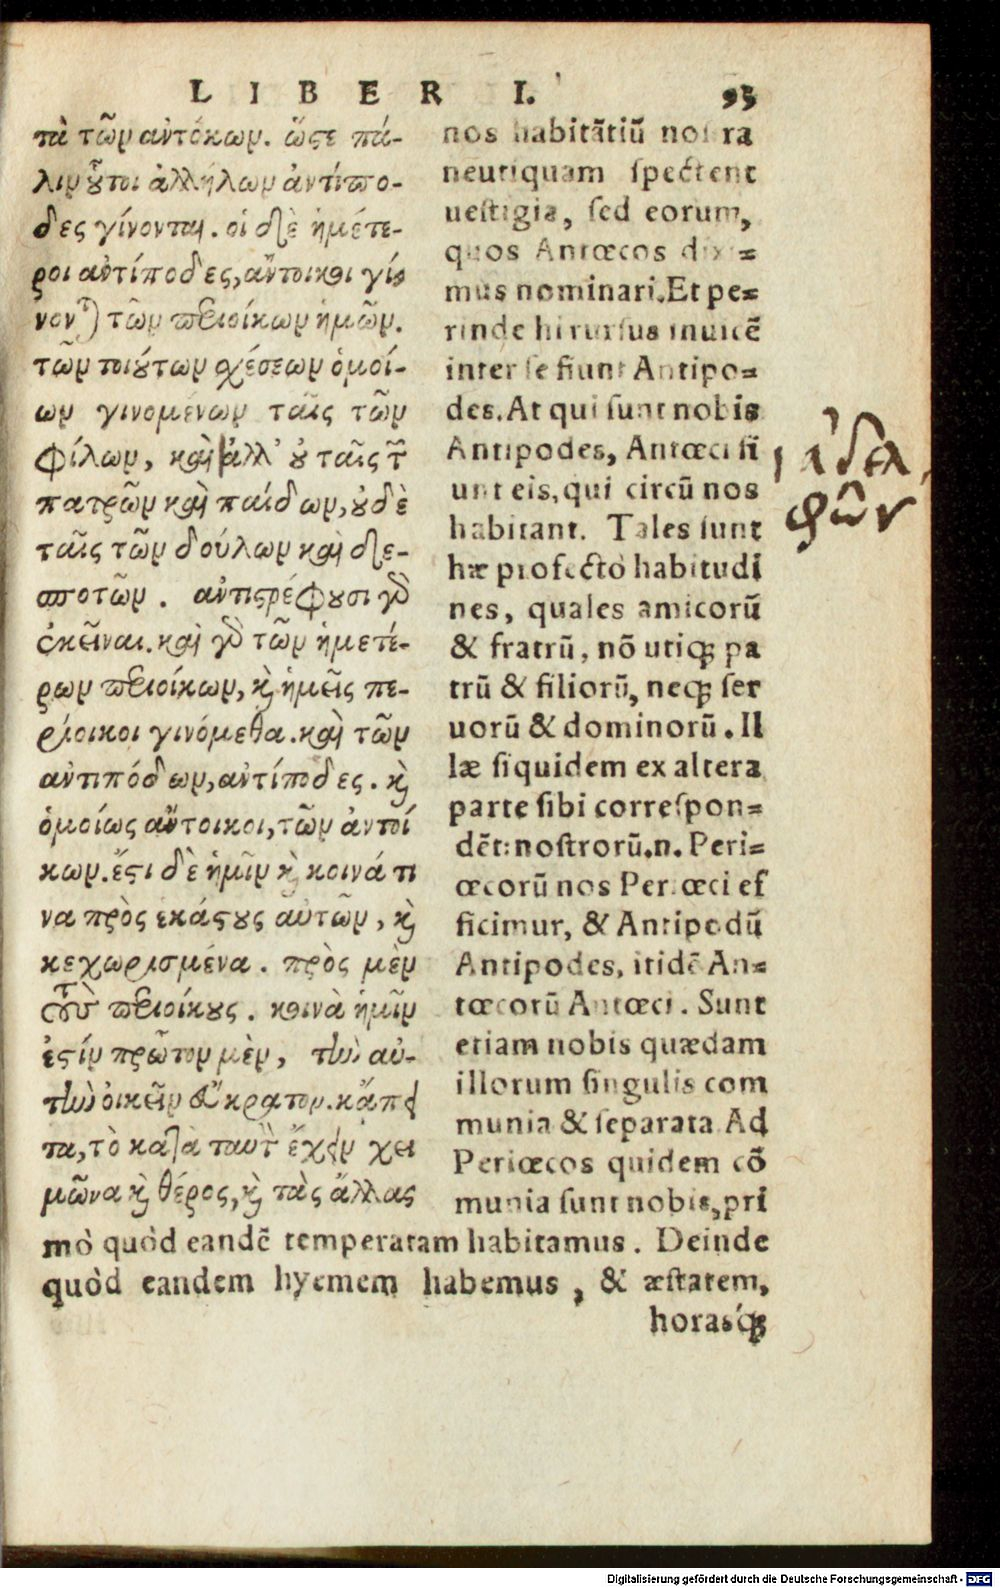 LIBER I. 93
πὰ τῶν αὐτόκων. ὥςε πά-
λιν οὗτοι ἀλλήλων ἀντίπο-
δες γίνονται. οἱ δὲ ἡμέτε-
ροι ἀντίποδες, ἄντοικοι γί-
νονται τῶν περιοίκων ἡμῶν.
τῶν τοιούτων σχέσεων ὁμοί-
ων γινομένων ταῖς τῶν
φίλων, καὶ ἀλλ' οὐ ταῖς τῶν
πατρῶν καὶ παίδων, οὐδὲ
ταῖς τῶν δούλων καὶ δε-
σποτῶν. ἀντιςρέφουσι γὰρ
ἐκεῖναι. καὶ γὰρ τῶν ἡμετέ-
ρων περιοίκων, καὶ ἡμεῖς πε-
ρίοικοι γινόμεθα. καὶ τῶν
ἀντιπόδων, ἀντίποδες. καὶ
ὁμοίως ἄντοικοι, τῶν ἀντοί
κων. ἔςι δὲ ἡμῖν καὶ κοινά τι
να πρὸς ἑκάςους αὐτῶν, καὶ
κεχωρισμένα. πρὸς μὲν
τοὺς περιοίκους. κοινὰ ἡμῖν
ἐςὶν πρῶτον μὲν, τὴν αὐ-
τὴν οἰκεῖν εὔκρατον. κἄπει
τα, τὸ κατὰ ταυτὸ ἔχειν χει
μῶνα καὶ θέρος, καὶ τὰς ἄλλας
nos habitātiū nostra
neutiquam spectent
uestigia, sed eorum,
quos Antœcos dixi=
mus nominari. Et pe=
rinde hi rursus inuicē
inter se fiunt Antipo=
des. At qui sunt nobis
Antipodes, Antœci fi
unt eis, qui circū nos
habitant. Tales sunt
hæ profectò habitudi
nes, quales amicorū
& fratrū, nō utiq; pa
trū & filiorū, neq; ser
uorū & dominorū. Il
læ siquidem ex altera
parte sibi correspon=
dēt: nostrorū .n. Peri=
œcorū nos Periœci ef
ficimur, & Antipodū
Antipodes, itidē An=
tœcorū Antœci. Sunt
etiam nobis quædam
illorum singulis com
munia & separata. Ad
Periœcos quidem cō
munia sunt nobis, pri
mò quòd eandē temperatam habitamus. Deinde
quòd eandem hyemem habemus, & æstatem,
horasq́;
ἀδελ
φῶν
Digitalisierung gefördert durch die Deutsche Forschungsgemeinschaft - DFG